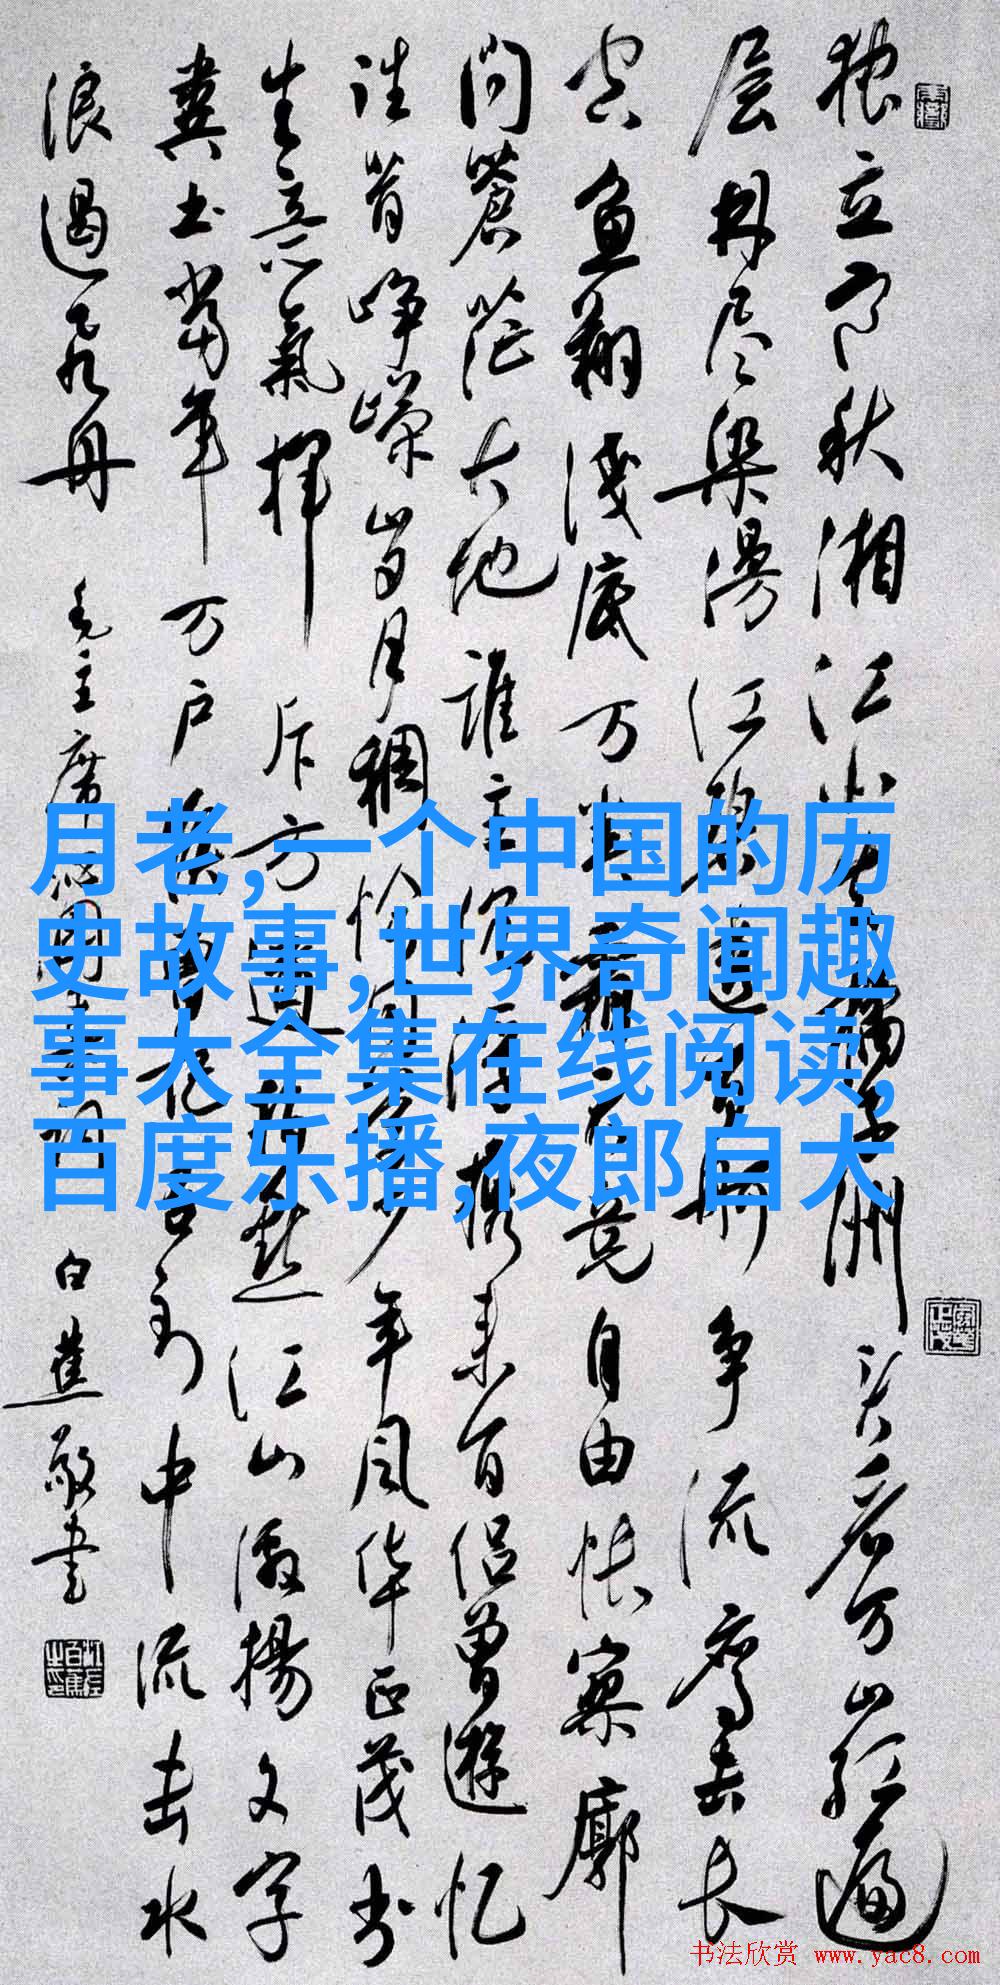 独立寒秋湘江北去橘子洲头看万山红遍
层林尽染漫江碧透百舸争流鹰击长
空鱼翔浅底万类霜天竞自由怅寥廓
问蒼茫大地谁主沉浮携来百侣曾遊忆
往昔峥嵘岁月稠恰同学少年风华正茂书
生意氣挥斥方遒指点江山激揚文字
粪土当年万户侯曾记否到中流击水
浪遏飞舟 毛主席沁园春词 白蕉敬书
月老,一个中国的历
史故事,世界奇闻趣
事大全集在线阅读,
百度乐播,夜郎自大
书法欣赏 www.yac8.com